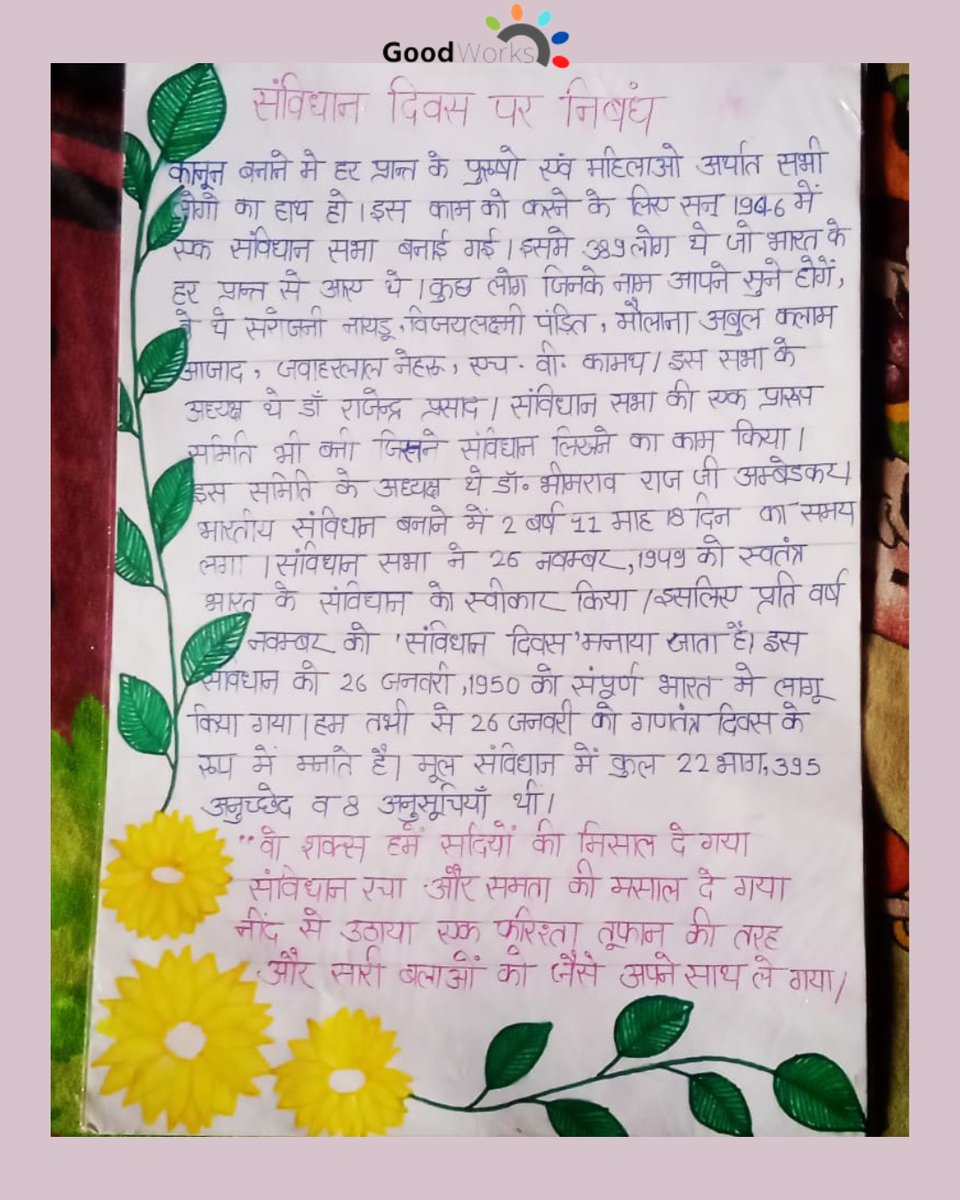 GoodWorks
संविधान दिवस पर निबंध
कानून बनाने मे हर प्रान्त के पुरुषो एवं महिलाओ अर्थात सभी
लोगो का हाथ हो। इस काम को करने के लिए सन् 1946 में
एक संविधान सभा बनाई गई। इसमे 389 लोग थे जो भारत के
हर प्रान्त से आए थे। कुछ लोग जिनके नाम आपने सुने होगें,
वे थे सरोजनी नायडू, विजयलक्ष्मी पंडित, मौलाना अबुल कलाम
आजाद, जवाहरलाल नेहरू, एच. वी. कामथ। इस सभा के
अध्यक्ष थे डॉ राजेन्द्र प्रसाद। संविधान सभा की एक प्रारूप
समिति भी बनी जिसने संविधान लिखने का काम किया।
इस समिति के अध्यक्ष थे डॉ. भीमराव राज जी अम्बेडकर।
भारतीय संविधान बनाने में 2 बर्ष 11 माह 18 दिन का समय
लगा। संविधान सभा ने 26 नवम्बर, 1949 को स्वतंत्र
भारत के संविधान को स्वीकार किया। इसलिए प्रति वर्ष
नवम्बर को 'संविधान दिवस' मनाया जाता है। इस
संविधान को 26 जनवरी, 1950 को संपूर्ण भारत मे लागू
किया गया। हम तभी से 26 जनवरी को गणतंत्र दिवस के
रूप में मनाते है। मूल संविधान में कुल 22 भाग, 395
अनुच्छेद व 8 अनुसूचियाँ थी।
"वो शक्स हमें सदियों की मिसाल दे गया
संविधान रचा और समता की मसाल दे गया
नींद से उठाया एक फरिश्ता तूफान की तरह
और सारी बलाओं को जैसे अपने साथ ले गया।